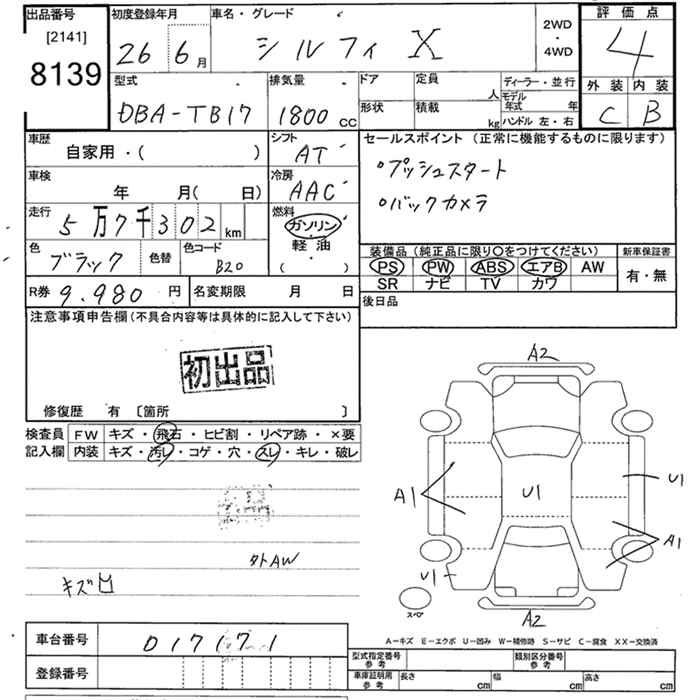 出品番号
[2141]
8139
初度登録年月
26 6月
車名・グレード
シルフィ X
2WD
・
4WD
評価点
4
外装 内装
C B
型式
DBA-TB17
排気量
1800 CC
ドア
形状
定員 人
積載 kg
ディーラー・並行
モデル年式 年
ハンドル 左・右
車歴
自家用・( )
シフト
AT
セールスポイント(正常に機能するものに限ります)
○プッシュスタート
○バックカメラ
車検
年 月( 日)
冷房
AAC
走行
5万7千302km
燃料
ガソリン・
軽油・
( )
色
ブラック
色替
色コード
B20
装備品(純正品に限り○をつけてください)
PS PW ABS エアB AW
SR ナビ TV カワ
新車保証書
有・無
R券 9.980円
名変期限 月 日
後日品
注意事項申告欄(不具合内容等は具体的に記入して下さい)
初出品
修復歴 有 [箇所 ]
検査員
記入欄
FW キズ・飛石・ヒビ割・リペア跡・×要
内装 キズ・汚レ・コゲ・穴・スレ・キレ・破レ
外AW
キズ凹
A2
A1
U1
U1
A1
U1
スペア
A2
車台番号 017171
登録番号
A-キズ E-エクボ U-凹み W-補修跡 S-サビ C-腐食 XX-交換済
型式指定番号
参考
類別区分番号
参考
車庫証明用
参考
長さ cm 幅 cm 高さ cm